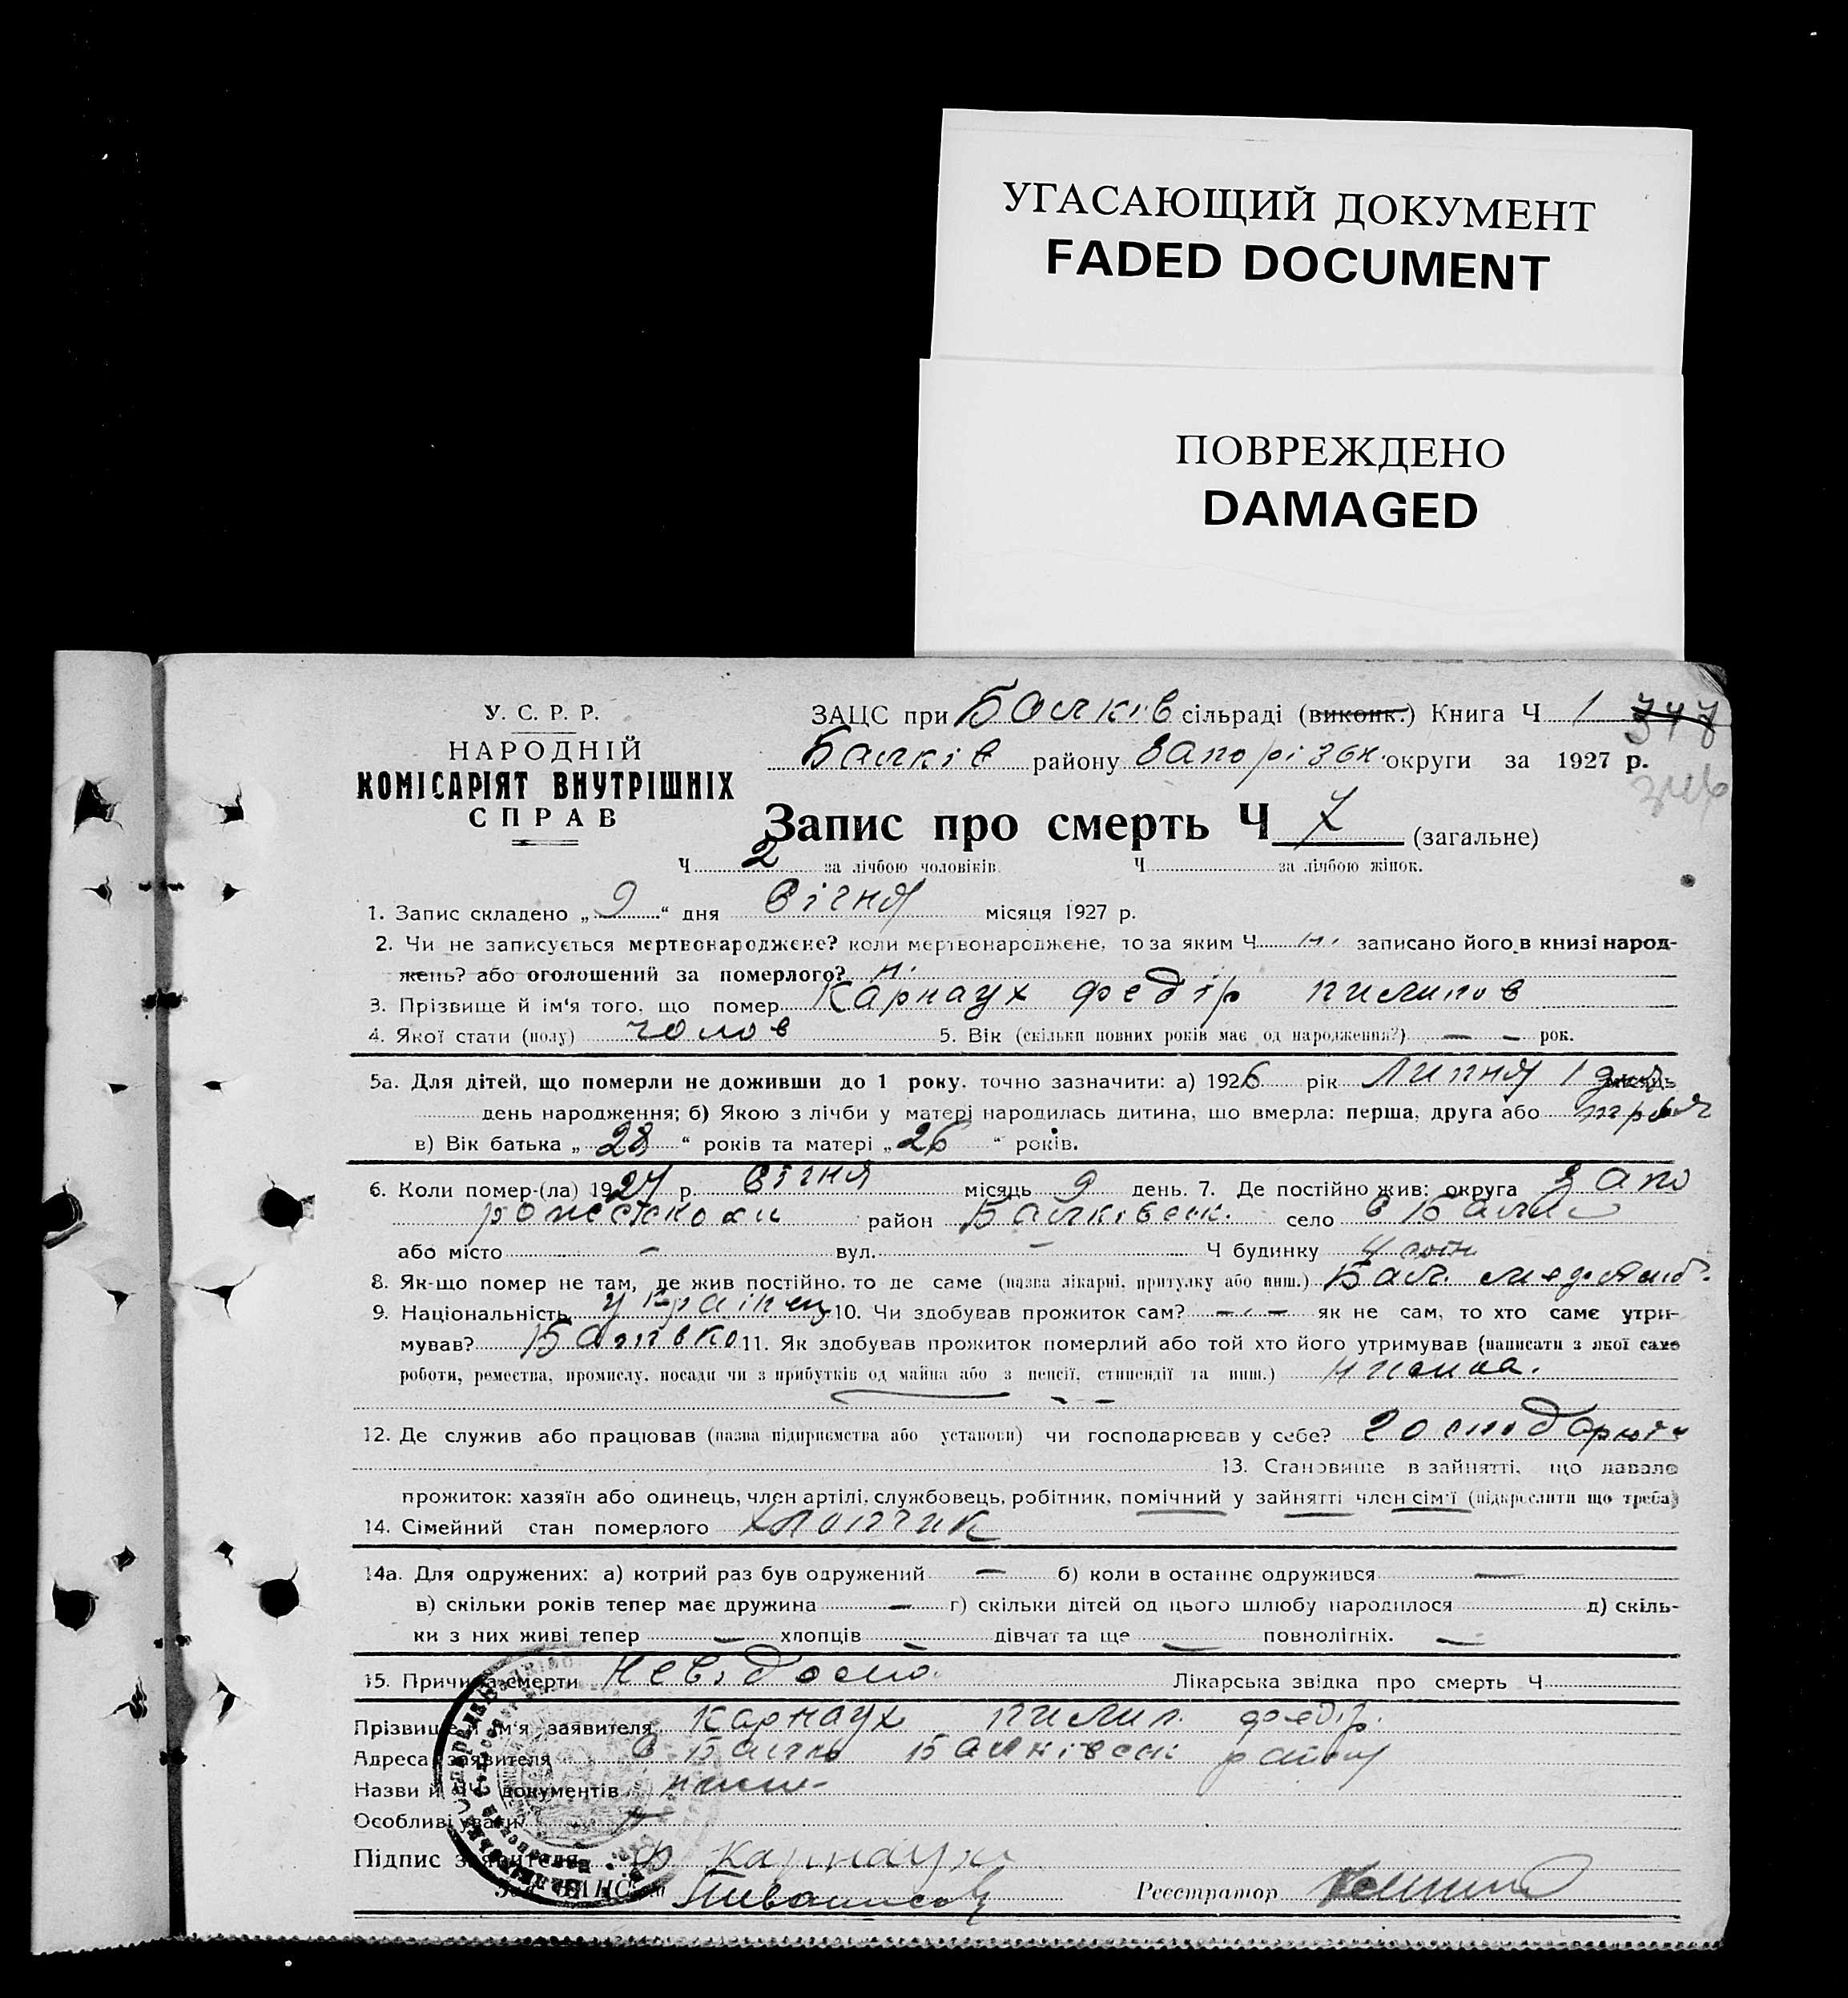 УГАСАЮЩИЙ ДОКУМЕНТ
FADED DOCUMENT
ПОВРЕЖДЕНО
DAMAGED
У. С. Р. Р.
НАРОДНІЙ
КОМІСАРІЯТ ВНУТРІШНІХ
СПРАВ
ЗАЦС при Балків сільраді (виконк.) Книга Ч 1 347
Балків району Запорізьк. округи за 1927 р.
Запис про смерть Ч 7 (загальне)
Ч 2 за лічбою чоловіків Ч за лічбою жінок.
1. Запис складено „ 9 “ дня Січня місяця 1927 р.
2. Чи не записується мертвонароджене? коли мертвонароджене, то за яким Ч н. записано його в книзі народ-
жень? або оголошений за померлого? н.
3. Прізвище й ім'я того, що помер Карнаух Федір Пилипов
4. Якої стати (полу) чолов 5. Вік (скільки повних років має од народження?) — — рок.
5а. Для дітей, що померли не доживши до 1 року, точно зазначити: а) 1926 рік Липня 1 дня місяць
день народження; б) Якою з лічби у матері народилась дитина, що вмерла: перша, друга або
в) Вік батька „ 28 “ років та матері „ 26 “ років.
6. Коли помер-(ла) 1927 р. Січня місяць 9 день. 7. Де постійно жив: округа Запо
район Балківськ. село С Балки
або місто – вул. – Ч будинку
8. Як-що помер не там, де жив постійно, то де саме (назва лікарні, притулку або инш.) Балк.
9. Національність Українец 10. Чи здобував прожиток сам? — - — як не сам, то хто саме утри-
мував? Батько 11. Як здобував прожиток померлий або той хто його утримував (написати з якої саме
роботи, ремества, промислу, посади чи з прибутків од майна або з пенсії, стипендії та инш.)
12. Де служив або працював (назва підприємства або установи) чи господарював у себе?
13. Становище в зайнятті, що давало
прожиток: хазяїн або одинець, член артілі, службовець, робітник, помічний у зайнятті член сім'ї (підкреслити що треба)
14. Сімейний стан померлого хлопчик
14а. Для одружених: а) котрий раз був одружений — б) коли в останнє одружився —
в) скільки років тепер має дружина — г) скільки дітей од цього шлюбу народилося д) скіль-
ки з них живі тепер — хлопців — дівчат та ще — повнолітніх. —
15. Причина смерти Невідома Лікарська звідка про смерть Ч
Прізвище й ім'я заявителя Карнаух Пилип Федір.
Адреса заявителя С Балки Балківськ району
Назви й ЧЧ документів
Особливі уваги
Підпис заявителя Карнаух
Зав. ЗАЦС'ом Реєстратор